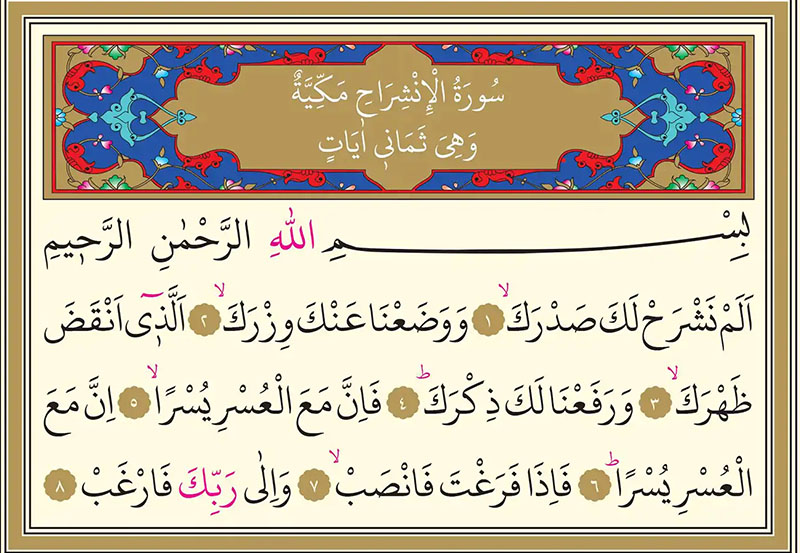 سُورَةُ الْاِنْشِرَاحِ مَكِّيَّةٌ
وَهِيَ ثَمَانِي اٰيَاتٍ
بِسْــــــــــــــــــمِ اللّٰهِ الرَّحْمٰنِ الرَّحٖيمِ
اَلَمْ نَشْرَحْ لَكَ صَدْرَكَۙ ﴿١﴾ وَوَضَعْنَا عَنْكَ وِزْرَكَۙ ﴿٢﴾ اَلَّذٖٓى اَنْقَضَ
ظَهْرَكَۙ ﴿٣﴾ وَرَفَعْنَا لَكَ ذِكْرَكَؕ ﴿٤﴾ فَاِنَّ مَعَ الْعُسْرِ يُسْرًاۙ ﴿٥﴾ اِنَّ مَعَ
الْعُسْرِ يُسْرًاؕ ﴿٦﴾ فَاِذَا فَرَغْتَ فَانْصَبْۙ ﴿٧﴾ وَاِلٰى رَبِّكَ فَارْغَبْ ﴿٨﴾